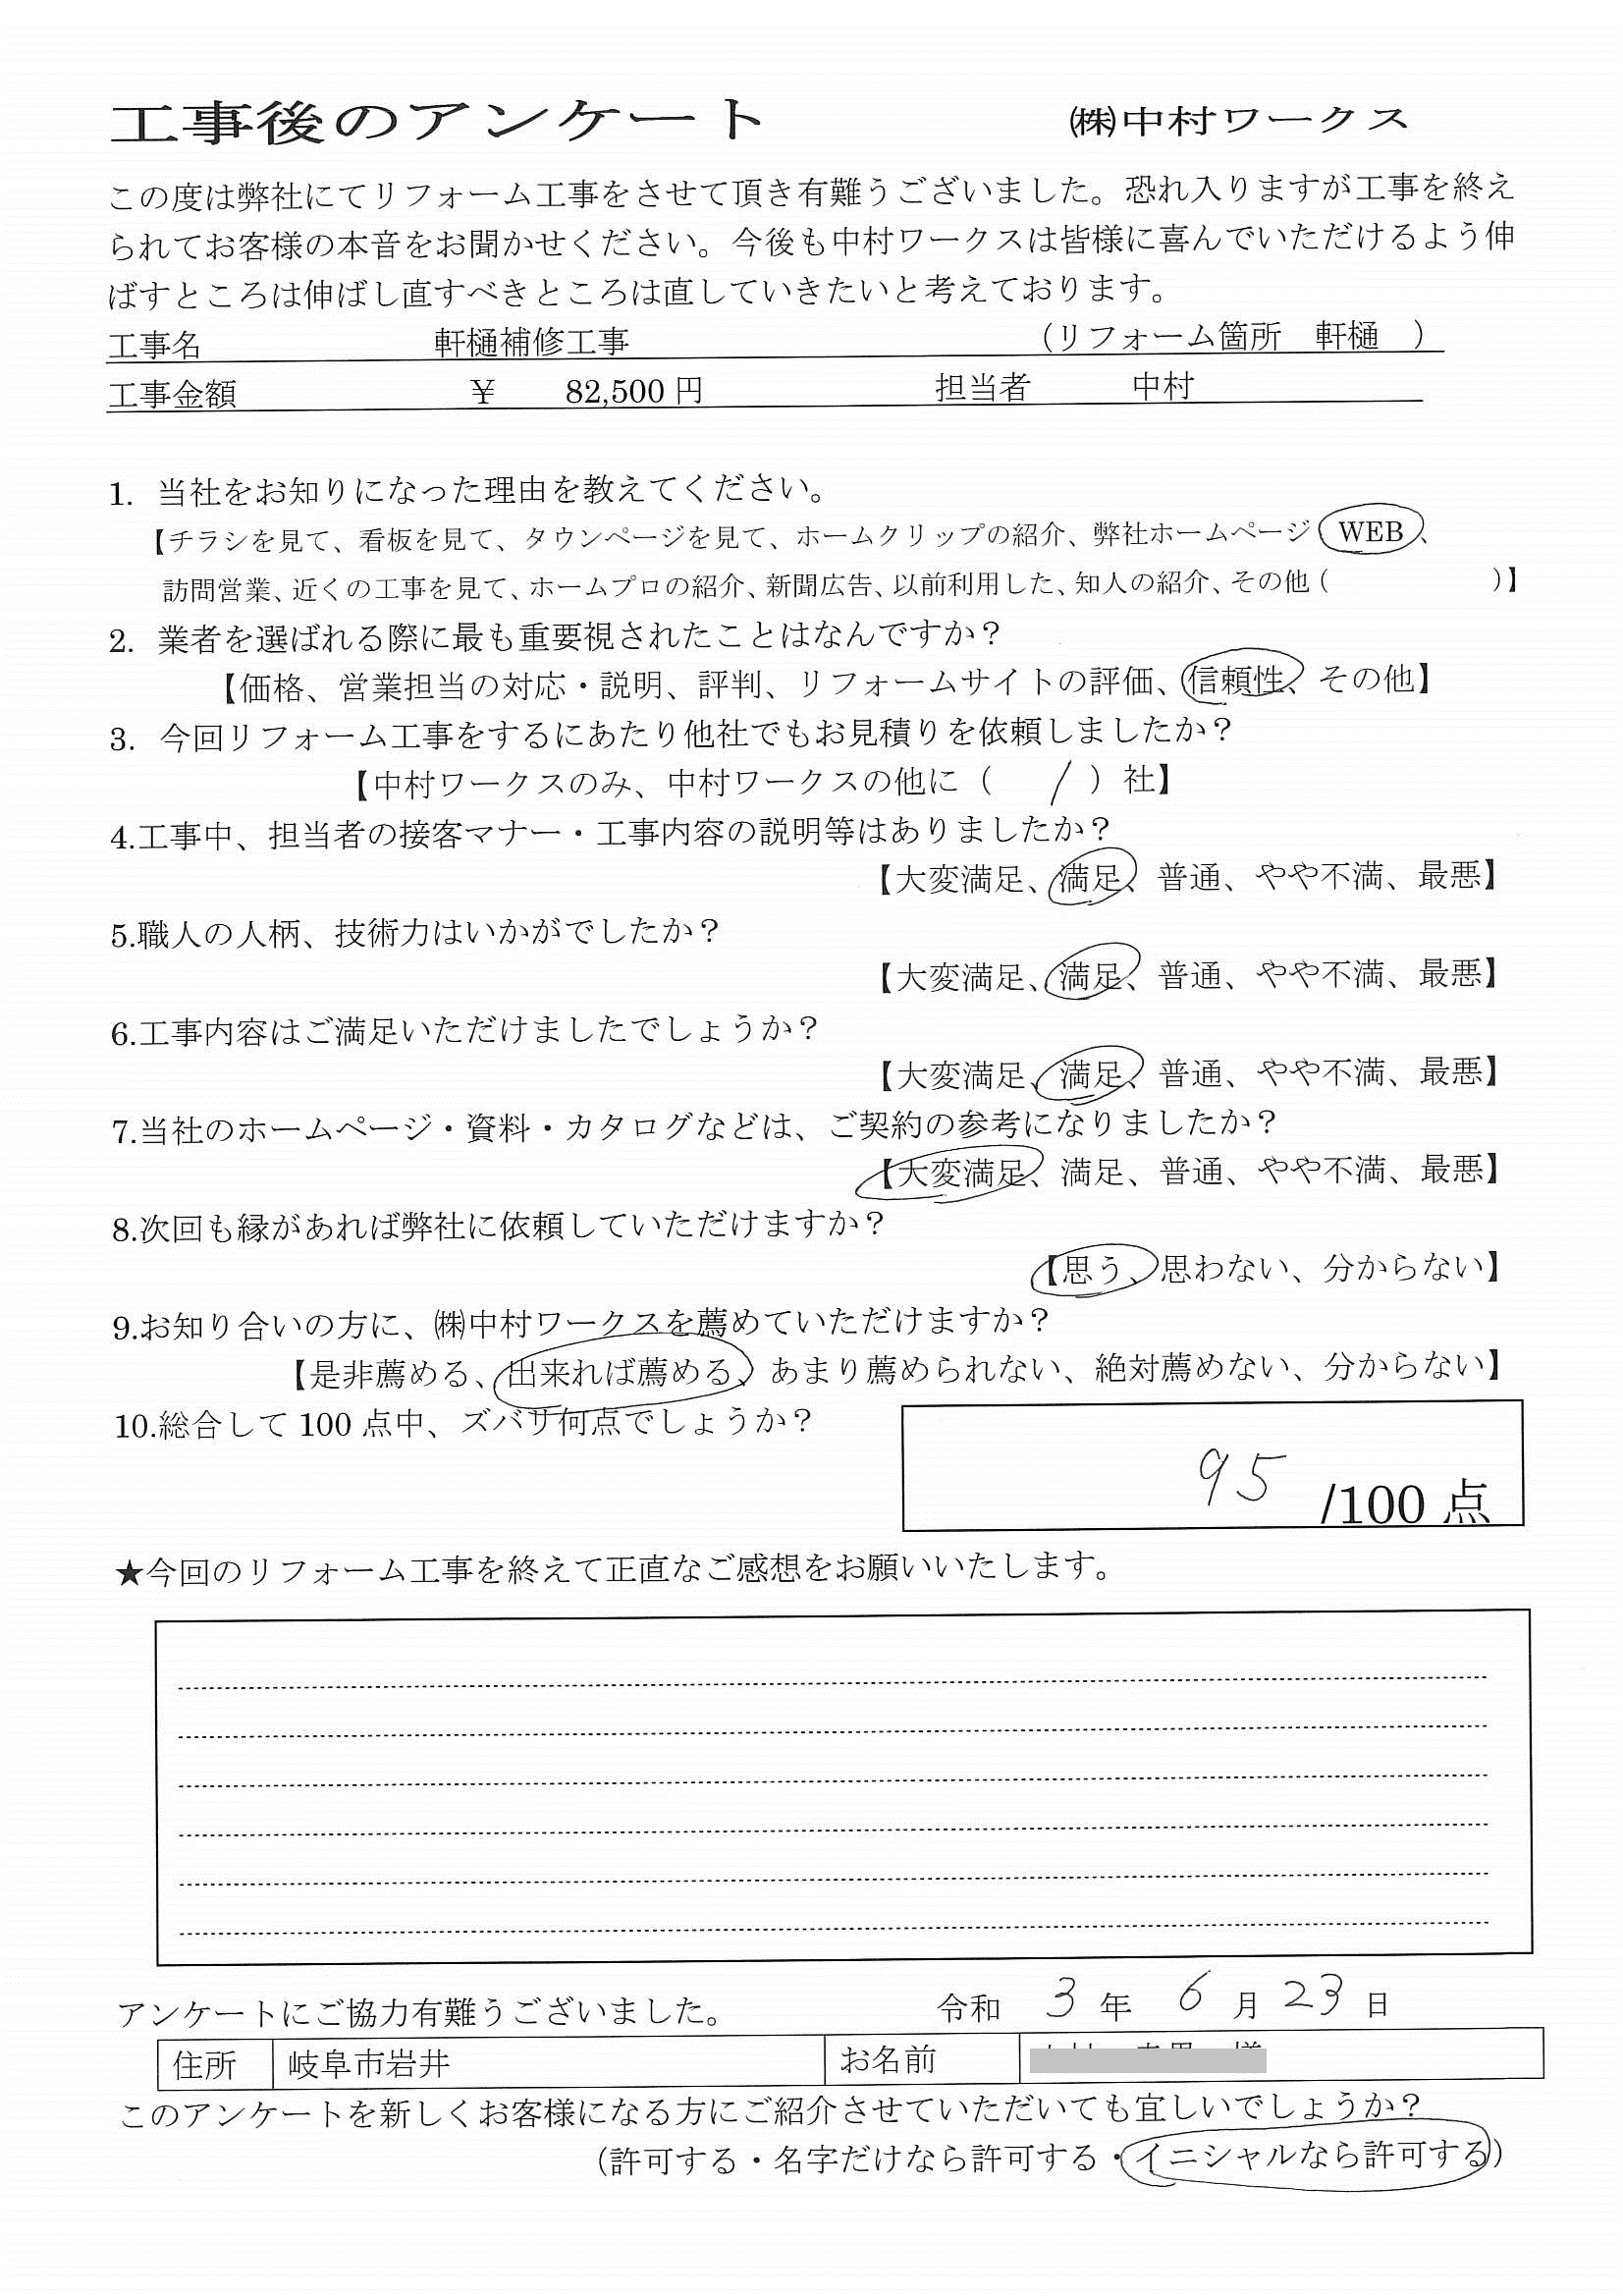 工事後のアンケート　㈱中村ワークス
この度は弊社にてリフォーム工事をさせて頂き有難うございました。恐れ入りますが工事を終え
られてお客様の本音をお聞かせください。今後も中村ワークスは皆様に喜んでいただけるよう伸
ばすところは伸ばし直すべきところは直していきたいと考えております。
工事名　軒樋補修工事　（リフォーム箇所　軒樋　）
工事金額　￥　82,500 円　担当者　中村
1. 当社をお知りになった理由を教えてください。
【チラシを見て、看板を見て、タウンページを見て、ホームクリップの紹介、弊社ホームページ WEB、
訪問営業、近くの工事を見て、ホームプロの紹介、新聞広告、以前利用した、知人の紹介、その他（　　　）】
2. 業者を選ばれる際に最も重要視されたことはなんですか？
【価格、営業担当の対応・説明、評判、リフォームサイトの評価、信頼性、その他】
3. 今回リフォーム工事をするにあたり他社でもお見積りを依頼しましたか？
【中村ワークスのみ、中村ワークスの他に（　/　）社】
4.工事中、担当者の接客マナー・工事内容の説明等はありましたか？
【大変満足、満足、普通、やや不満、最悪】
5.職人の人柄、技術力はいかがでしたか？
【大変満足、満足、普通、やや不満、最悪】
6.工事内容はご満足いただけましたでしょうか？
【大変満足、満足、普通、やや不満、最悪】
7.当社のホームページ・資料・カタログなどは、ご契約の参考になりましたか？
【大変満足、満足、普通、やや不満、最悪】
8.次回も縁があれば弊社に依頼していただけますか？
【思う、思わない、分からない】
9.お知り合いの方に、㈱中村ワークスを薦めていただけますか？
【是非薦める、出来れば薦める、あまり薦められない、絶対薦めない、分からない】
10.総合して 100 点中、ズバリ何点でしょうか？
95 /100 点
★今回のリフォーム工事を終えて正直なご感想をお願いいたします。
アンケートにご協力有難うございました。　令和 3 年 6 月 23 日
住所　岐阜市岩井　お名前
このアンケートを新しくお客様になる方にご紹介させていただいても宜しいでしょうか？
（許可する・名字だけなら許可する・イニシャルなら許可する）